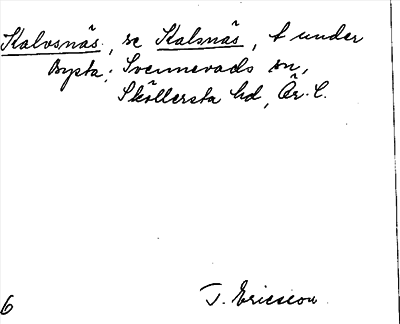 Skalvsnäs, se Skalsnäs, t under
Bysta, Svennevads sn,
Sköllersta hd, Ör. l.
T. Ericsson
6